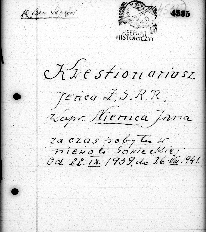 4385
HISTORYCZNY
Kwestionariusz
Jeńca Z.S.R.R.
Kapr. Niemica Jana
za czas pobytu w
niewoli sowieckiej
Od 22 IX. 1939 do 26 VIII. 941.